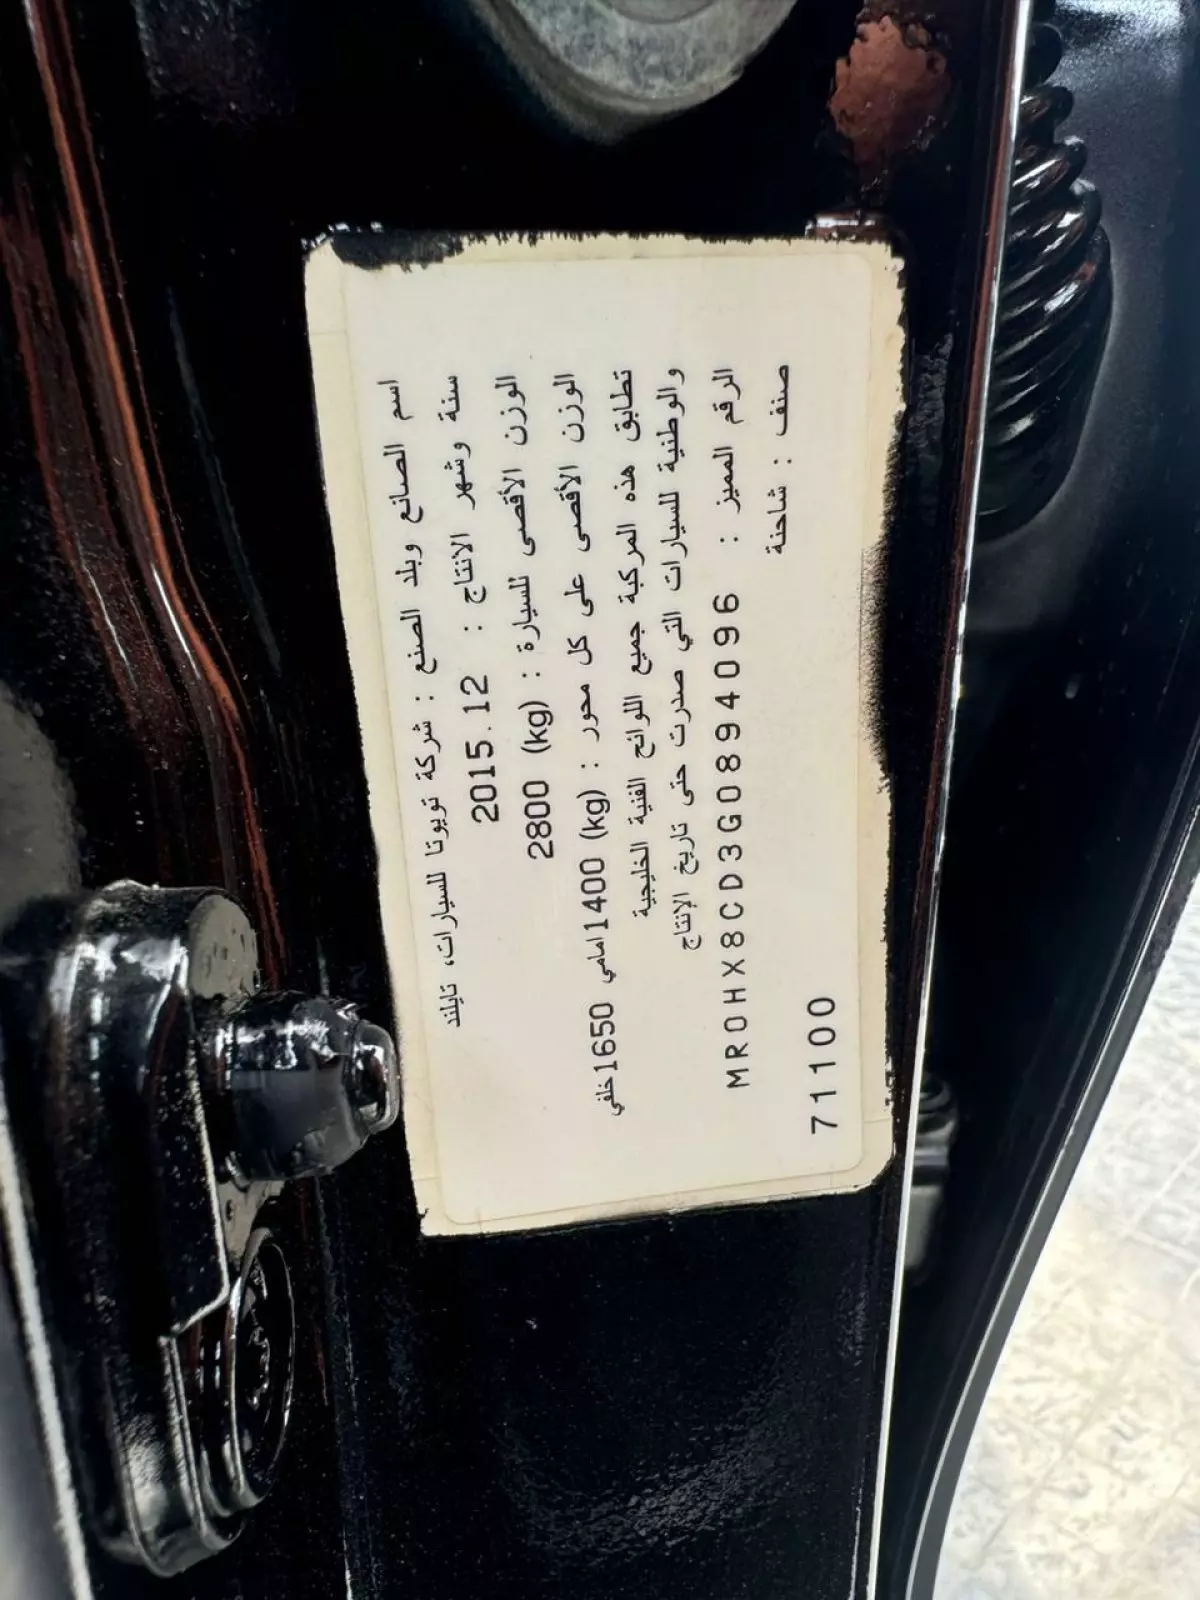 اسم الصانع وبلد الصنع : شركة تويوتا للسيارات، تايلند
سنة وشهر الانتاج : 2015.12
الوزن الأقصى للسيارة : 2800 (kg)
الوزن الأقصى على كل محور : (kg) 1400 امامي 1650 خلفي
تطابق هذه المركبة جميع اللوائح الفنية الخليجية
والوطنية للسيارات التي صدرت حتى تاريخ الإنتاج
الرقم المميز : MR0HX8CD3G0894096
صنف : شاحنة
71100